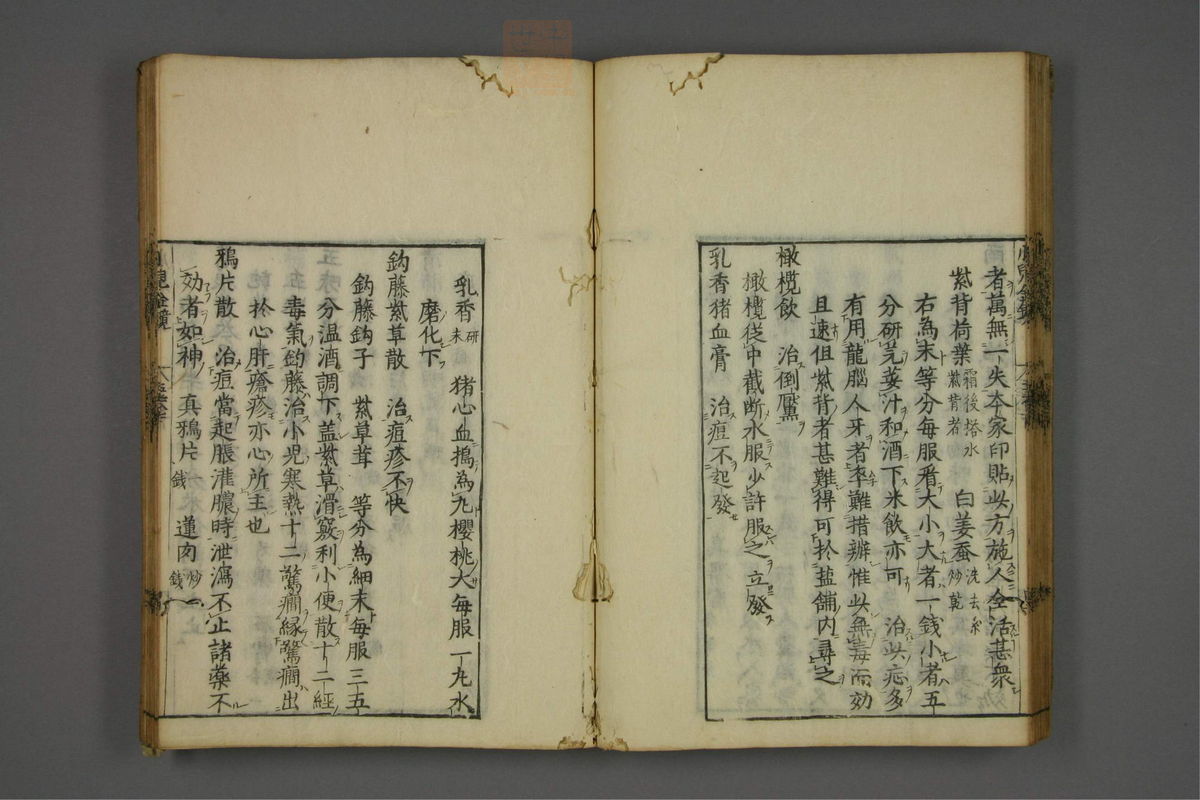 者萬無一失本家印貼此方施人全活甚衆
紫背荷葉 霜後搭水紫背者 白姜蚕 洗去糸炒乾
右為末等分每服看大小大者一錢小者五
分研芫荽汁和酒下米飲亦可 治此症多
有用龍腦人牙者率難措辦惟此無毒而効
且速但紫背者甚難得可於盐舖内尋之
橄欖飲 治倒黶
橄欖從中截断水服少許服之立發
乳香猪血膏 治痘不起發
乳香 研末 猪心血搗為丸櫻桃大每服一丸水
磨化下
鈎藤紫草散 治痘疹不快
鈎藤鈎子 紫草茸 等分為細末每服三五
分温酒調下盖紫草滑竅利小便散十二經
毒氣鈎藤治小児寒熱十二驚癇縁驚癇出
於心肝瘡疹亦心所主也
鴉片散 治痘當起脹灌膿時泄瀉不止諸藥不
効者如神 真鴉片 錢 蓮肉 炒 錢